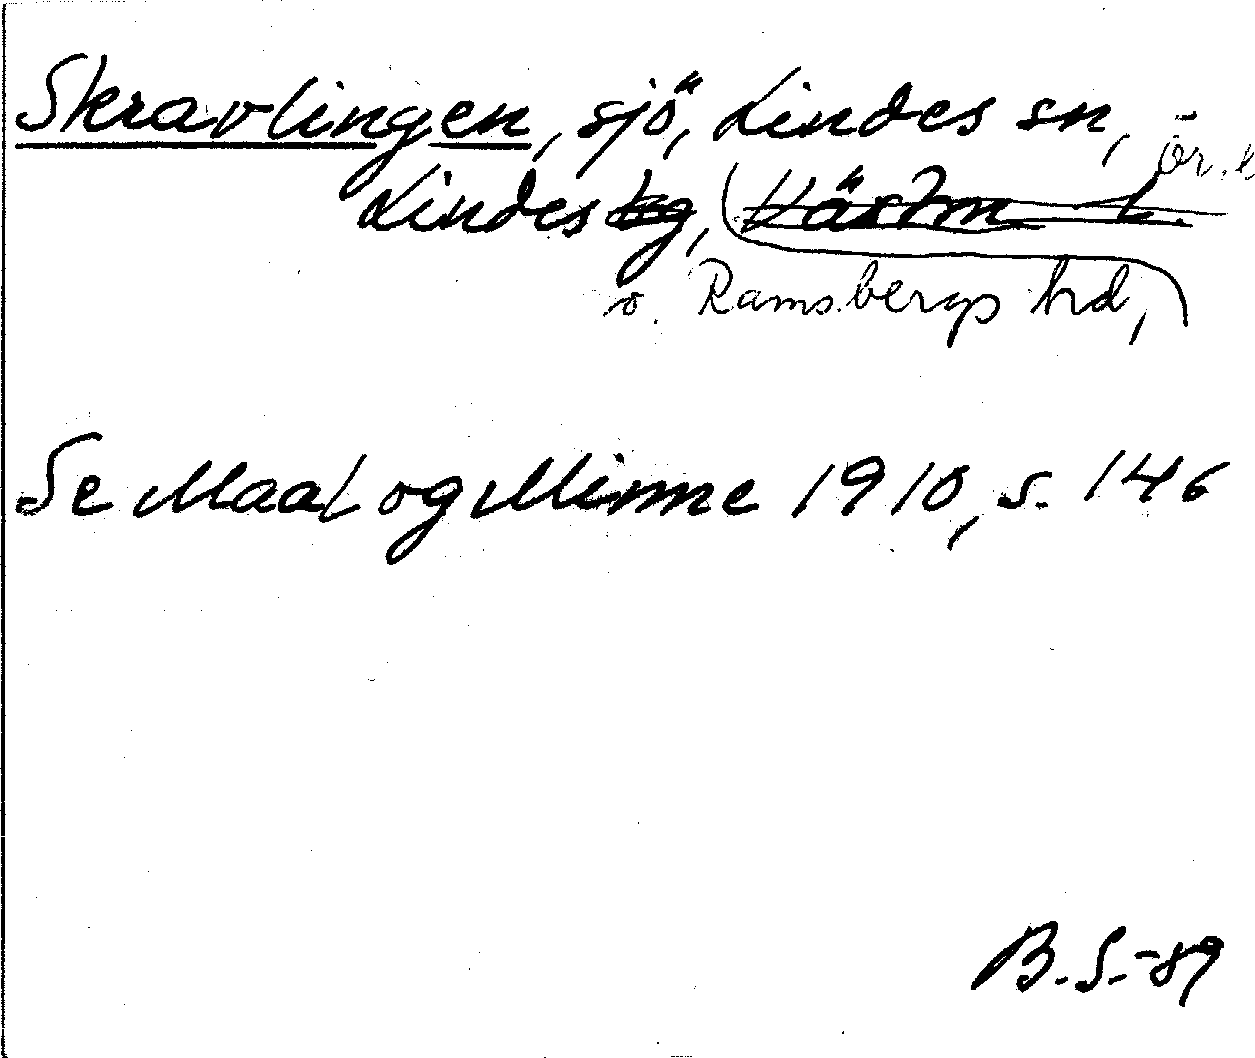 Skravlingen, sjö, Lindes sn, ör.l
Lindes kg, Västm L.
o. Ramsbergs hd,
Se Maal og Minne 1910, s. 146
B.S.-89